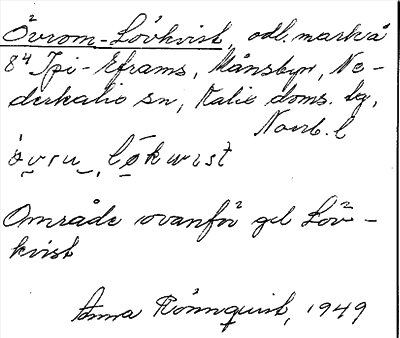 Övrom-Lövkvist, odl. mark å
8⁴ Jpi-Eframs, Månsbyn, Ne-
derkalix sn, Kalix doms. lg,
Norrb. l
Område ovanför gel Löv-
kvist
Anna Rönnquist, 1949